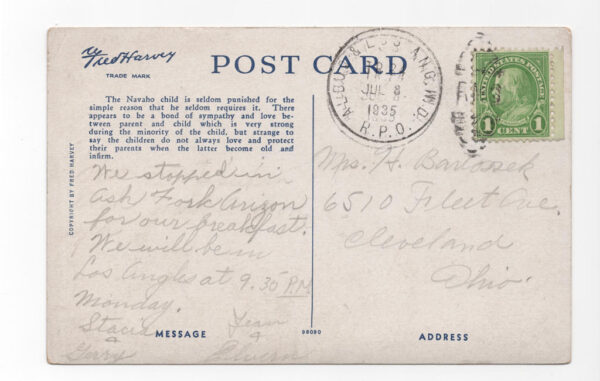 Fred Harvey
TRADE MARK
POST CARD
The Navaho child is seldom punished for the
simple reason that he seldom requires it. There
appears to be a bond of sympathy and love be-
tween parent and child which is very strong
during the minority of the child, but strange to
say the children do not always love and protect
their parents when the latter become old and
infirm.
COPYRIGHT BY FRED HARVEY
We stopped in
Ash Fork Arizon
for our breakfast.
We will be in
Los Angles at 9.30 P.M.
Monday.
Stacia Jean
&
Gerry
MESSAGE
ALBUQ. & LOS ANG. W.D.
JUL 8
1935
R.P.O.
UNITED STATES POSTAGE
1 CENT 1
Mrs. H.
6510 Fleet Ave.
Cleveland
Ohio.
ADDRESS